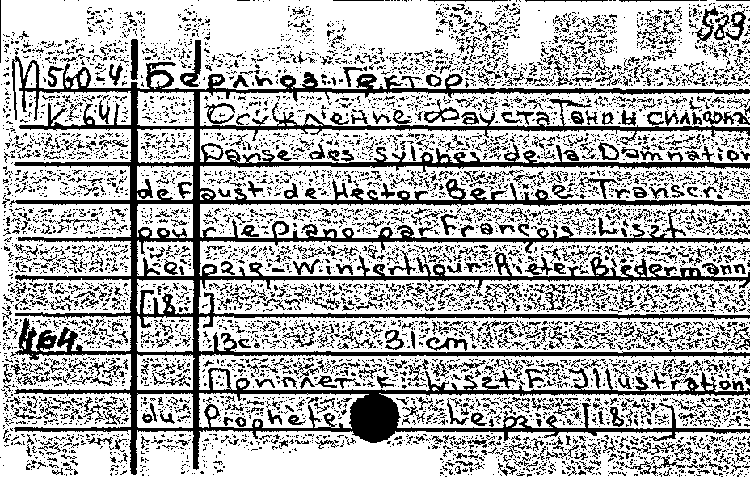 589
М 560-4 Берлиоз, Гектор
К 641 Осуждение Фауста Танец сильфов
Danse des Sylphes de la Damnation
de Faust de Hector Berlioz. Transcr.
pour le Piano par François Liszt.
Leipzig-Winterthour, Rieter-Biedermann,
[18..]
13 с. 31 cm.
Приплет. к: Liszt, F. Illustrations
du Prophète. Leipzig, [18...]